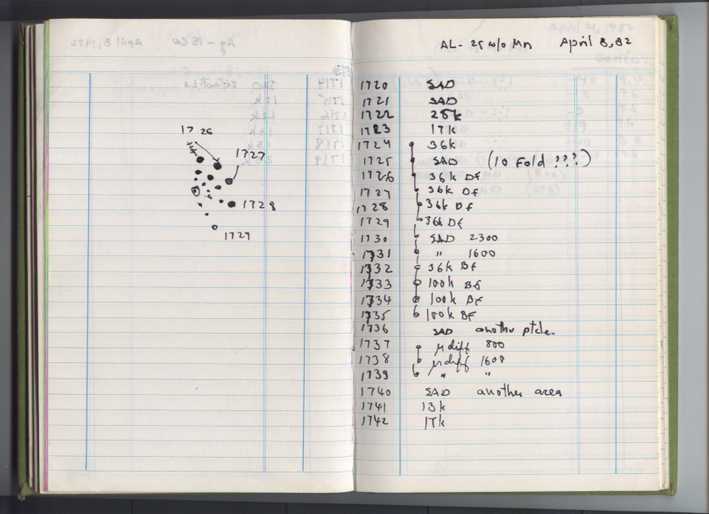 1726
1727
1728
1729
AL- 25 w/o Mn April 8, 82
1720 SAD
1721 SAD
1722 25k
1723 17k
1724 36k
1725 SAD (10 Fold ???)
1726 36k DF
1727 36k DF
1728 36k DF
1729 36k DF
1730 SAD 2300
1731 " 1600
1732 36k BF
1733 100k BF
1734 100k BF
1735 100k BF
1736 SAD another ptcle.
1737 μdiff 800
1738 μdiff 1600
1739 " "
1740 SAD another area
1741 13k
1742 17k